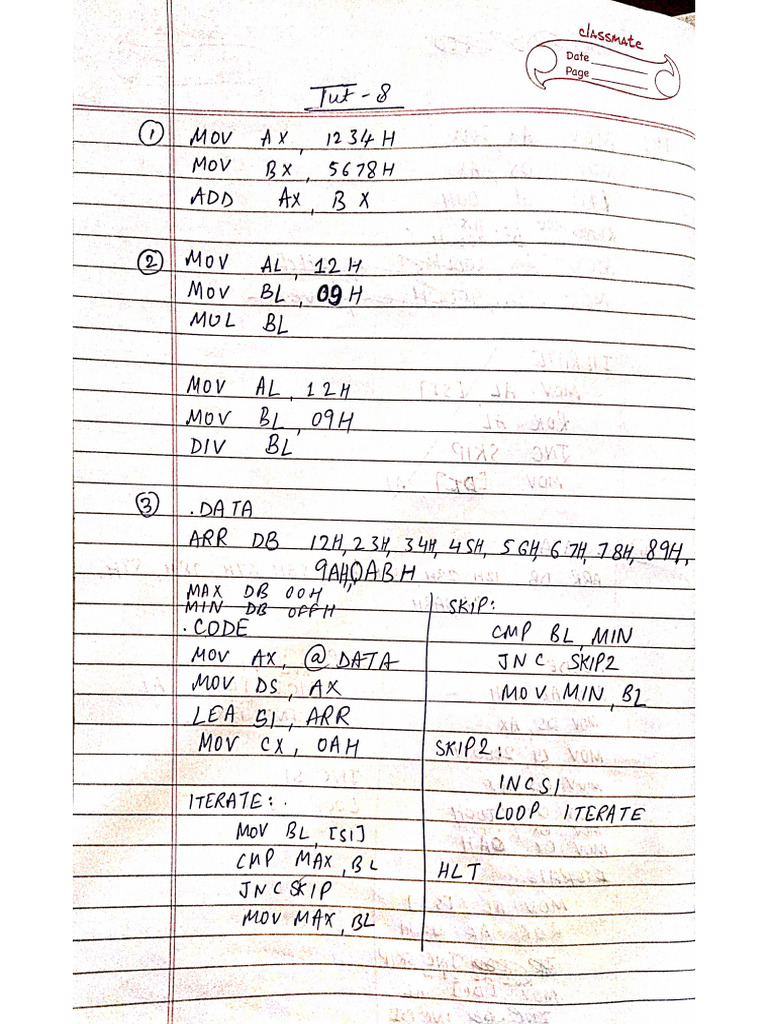 classmate
Date
Page
Tut-8
① MOV AX, 1234H
MOV BX, 5678H
ADD AX, BX
② MOV AL, 12H
MOV BL, 09H
MUL BL
MOV AL, 12H
MOV BL, 09H
DIV BL
③ .DATA
ARR DB 12H, 23H, 34H, 45H, 56H, 67H, 78H, 89H,
9AH, 0ABH
MAX DB 00H
MIN DB 0FFH
.CODE
MOV AX, @DATA
MOV DS, AX
LEA SI, ARR
MOV CX, 0AH
ITERATE:
MOV BL, [SI]
CMP MAX, BL
JNC SKIP
MOV MAX, BL
SKIP:
CMP BL, MIN
JNC SKIP2
MOV MIN, BL
SKIP2:
INC SI
LOOP ITERATE
HLT